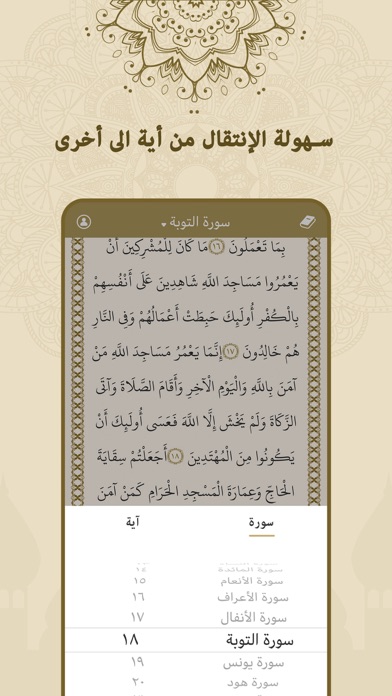 سـهولة الإنتقال من أية الى أخرى
سورة التوبة
بِمَا تَعْمَلُونَ ١٦ مَا كَانَ لِلْمُشْرِكِينَ أَنْ
يَعْمُرُوا مَسَاجِدَ اللَّهِ شَاهِدِينَ عَلَى أَنْفُسِهِمْ
بِالْكُفْرِ أُولَئِكَ حَبِطَتْ أَعْمَالُهُمْ وَفِي النَّارِ
هُمْ خَالِدُونَ ١٧ إِنَّمَا يَعْمُرُ مَسَاجِدَ اللَّهِ مَنْ
آمَنَ بِاللَّهِ وَالْيَوْمِ الْآخِرِ وَأَقَامَ الصَّلَاةَ وَآتَى
الزَّكَاةَ وَلَمْ يَخْشَ إِلَّا اللَّهَ فَعَسَى أُولَئِكَ أَنْ
يَكُونُوا مِنَ الْمُهْتَدِينَ ١٨ أَجَعَلْتُمْ سِقَايَةَ
الْحَاجِّ وَعِمَارَةَ الْمَسْجِدِ الْحَرَامِ كَمَنْ آمَنَ
سورة آية
سورة المائدة ١٤
سورة الأنعام ١٥
سورة الأعراف ١٦
سورة الأنفال ١٧
سورة التوبة ١٨
سورة يونس ١٩
سورة هود ٢٠